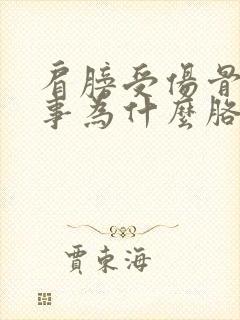 肩膀受傷骨
事為什麼胳
賈東海